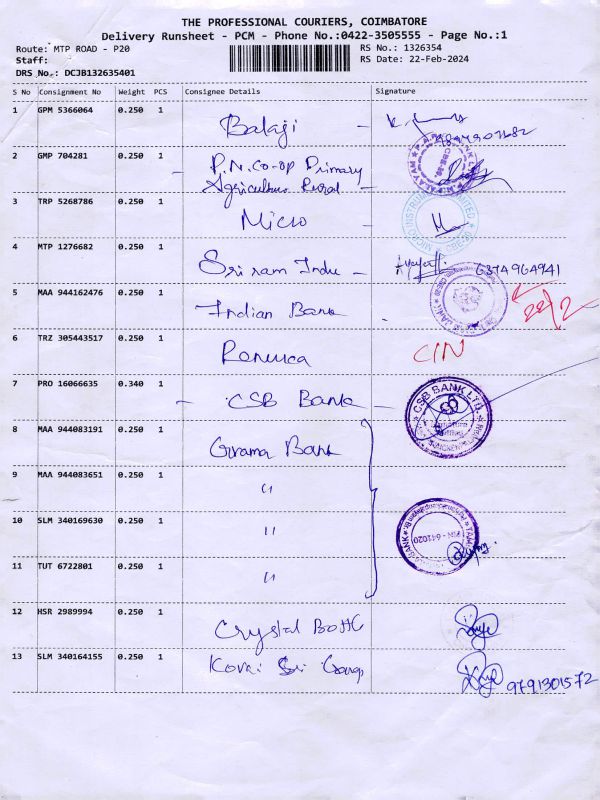 THE PROFESSIONAL COURIERS, COIMBATORE
Delivery Runsheet - PCM - Phone No.:0422-3505555 - Page No.:1
Route: MTP ROAD - P20 RS No.: 1326354
Staff: RS Date: 22-Feb-2024
DRS No.: DCJB132635401
S No Consignment No Weight PCS Consignee Details Signature
1 GPM 5366064 0.250 1 Balaji -
2 GMP 704281 0.250 1 P.N. Co-op Primary
Agriculture Rural -
3 TRP 5268786 0.250 1 Micro
4 MTP 1276682 0.250 1 Sri ram Indu - 6374964941
5 MAA 944162476 0.250 1 Indian Bank 22/2
6 TRZ 305443517 0.250 1 Renuca CIN
7 PRO 16066635 0.340 1 - CSB Bank - CSB BANK LTD.
8 MAA 944083191 0.250 1 Grama Bank
9 MAA 944083651 0.250 1 "
10 SLM 340169630 0.250 1 " PIN - 641020
11 TUT 6722801 0.250 1 "
12 HSR 2989994 0.250 1 Crystal
13 SLM 340164155 0.250 1 Kovai Sri 9791301572